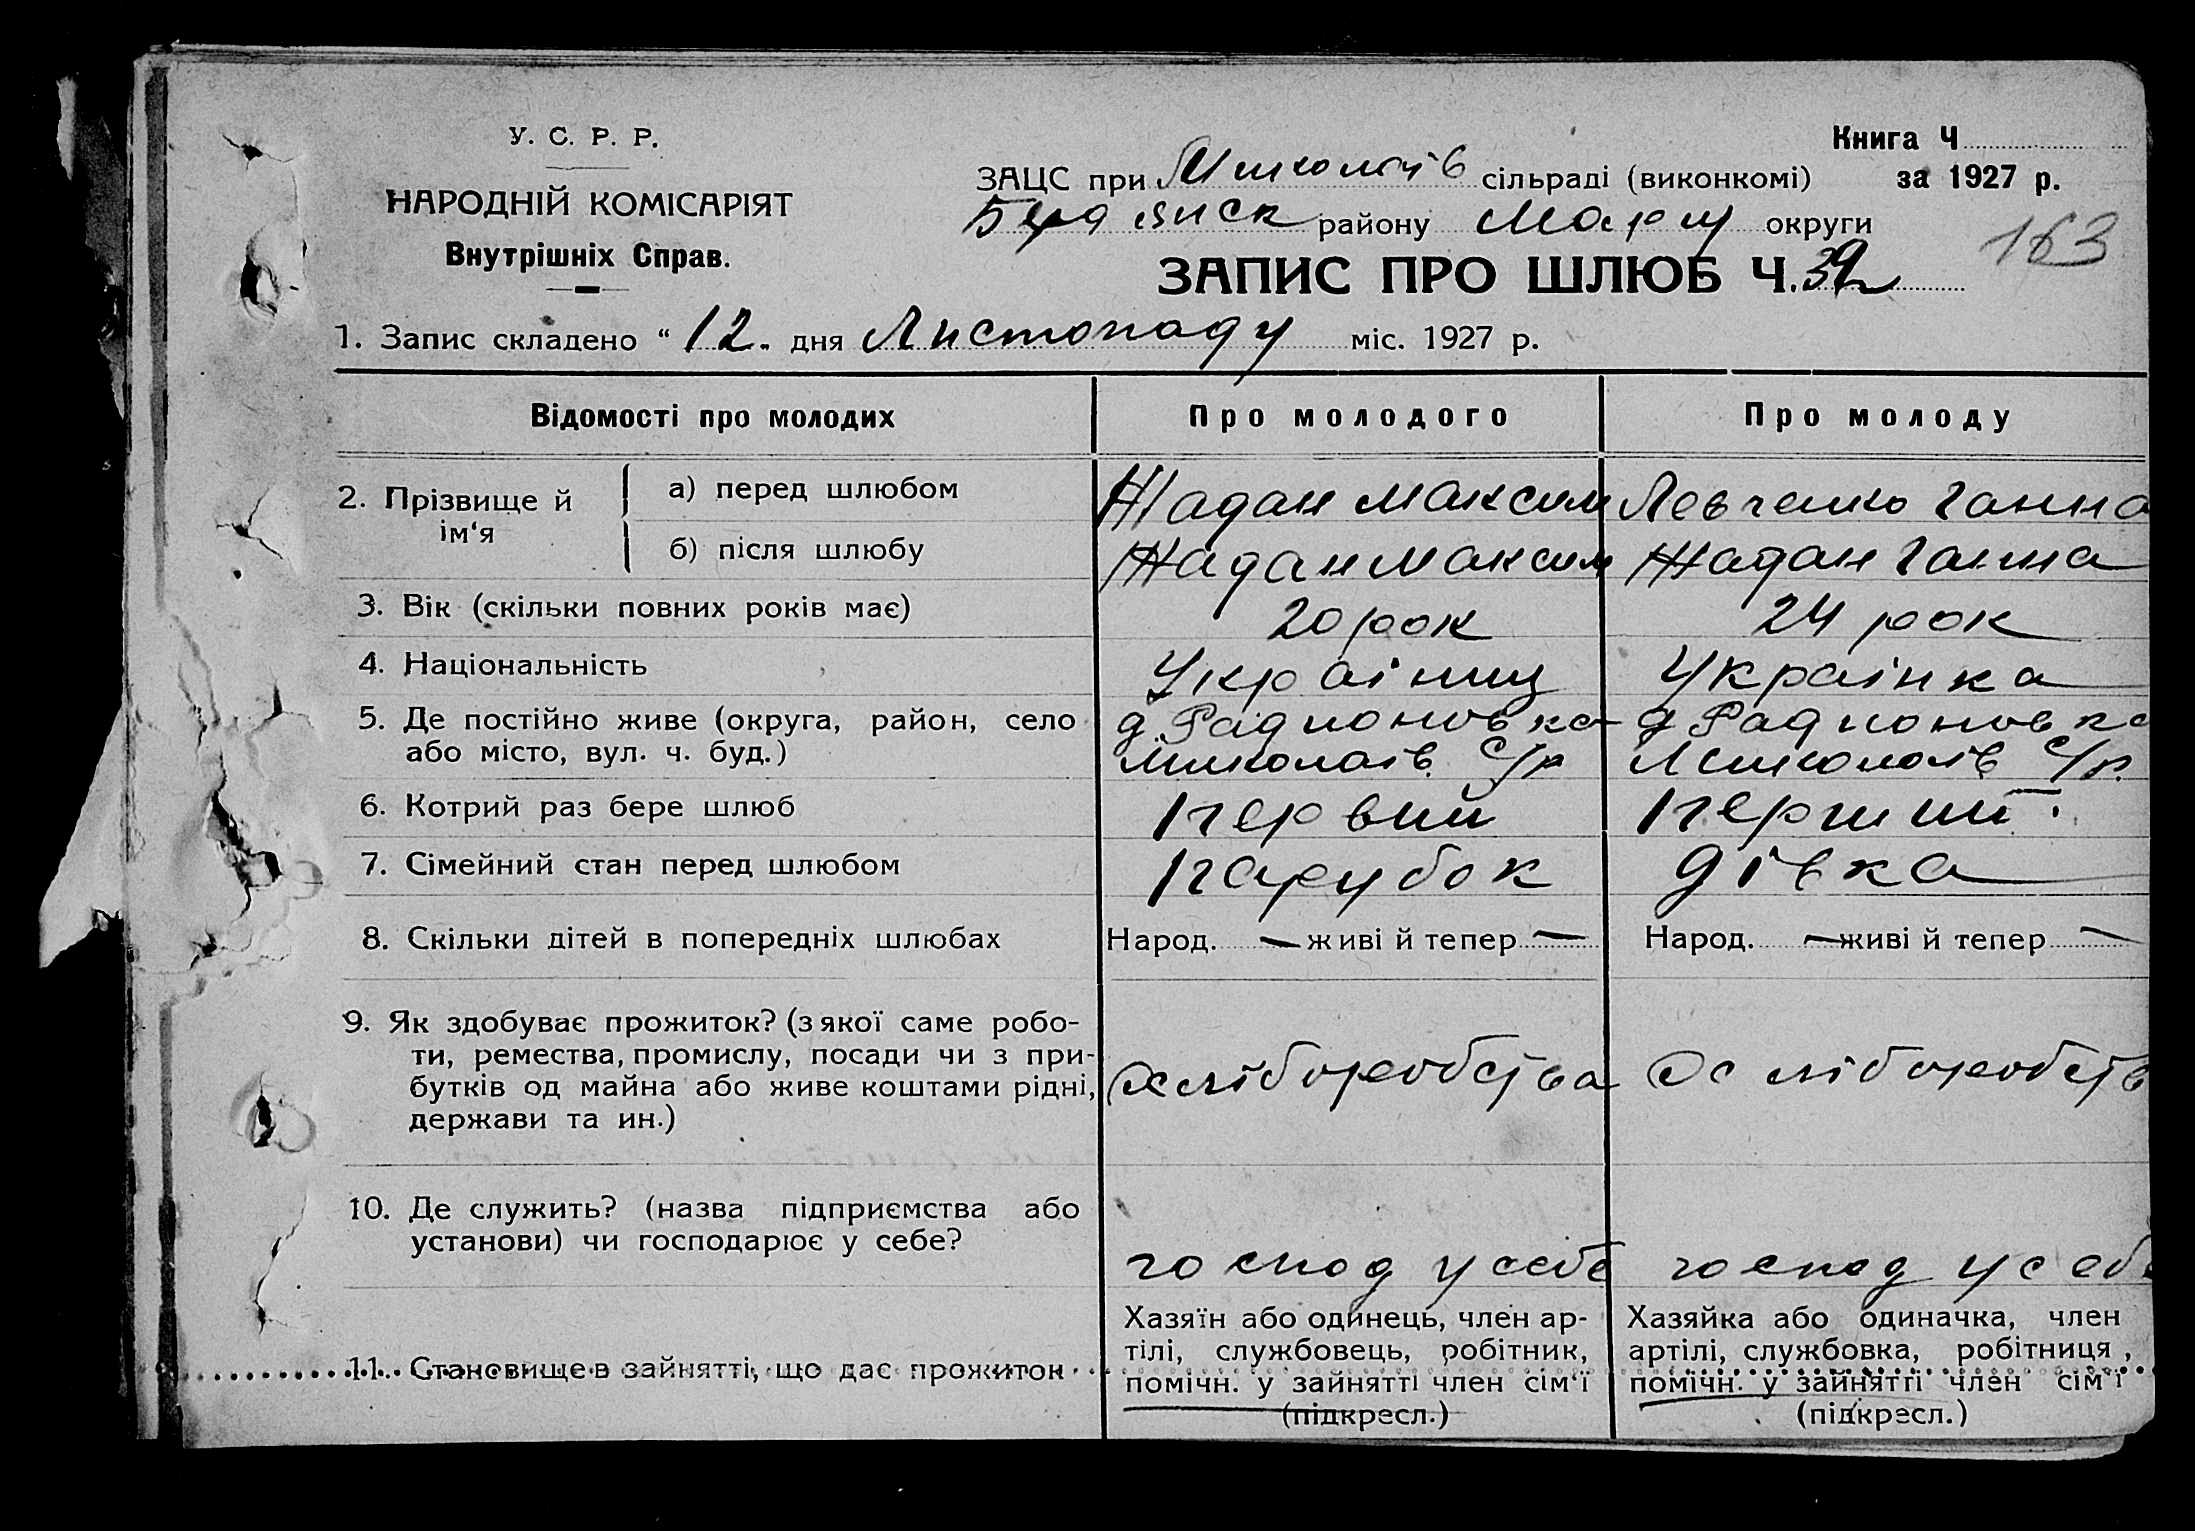 У. С. Р. Р.
НАРОДНІЙ КОМІСАРІЯТ
Внутрішніх Справ.
Книга Ч
за 1927 р.
ЗАЦС при Миколаїв сільраді (виконкомі)
Бердянск району Марiу округи
163
ЗАПИС ПРО ШЛЮБ Ч. 39
1. Запис складено “ 12 „ дня Листопаду міс. 1927 р.
Відомості про молодих Про молодого Про молоду
2. Прізвище й ім‘я
а) перед шлюбом Жадан Максим Левченко Ганна
б) після шлюбу Жадан Максим Жадан Ганна
3. Вік (скільки повних років має) 20 рок 24 рок
4. Національність Українец Українка
5. Де постійно живе (округа, район, село д. Радионовка д Радионовка
або місто, вул. ч. буд.) Миколаїв. С/р Миколаїв С/р.
6. Котрий раз бере шлюб первий перший
7. Сімейний стан перед шлюбом парубок дівка
8. Скільки дітей в попередніх шлюбах Народ. — живі й тепер — Народ. — живі й тепер —
9. Як здобуває прожиток? (з якої саме робо-
ти, ремества, промислу, посади чи з при-
бутків од майна або живе коштами рідні, хліборобства хліборобств
держави та ин.)
10. Де служить? (назва підприємства або
установи) чи господарює у себе? господ у себе господ у себе
11. Становище в зайнятті, що дає прожиток
Хазяїн або одинець, член ар-
тілі, службовець, робітник,
помічн. у зайнятті член сім‘ї
(підкресл.)
Хазяйка або одиначка, член
артілі, службовка, робітниця,
помічн. у зайнятті член сім‘ї
(підкресл.)